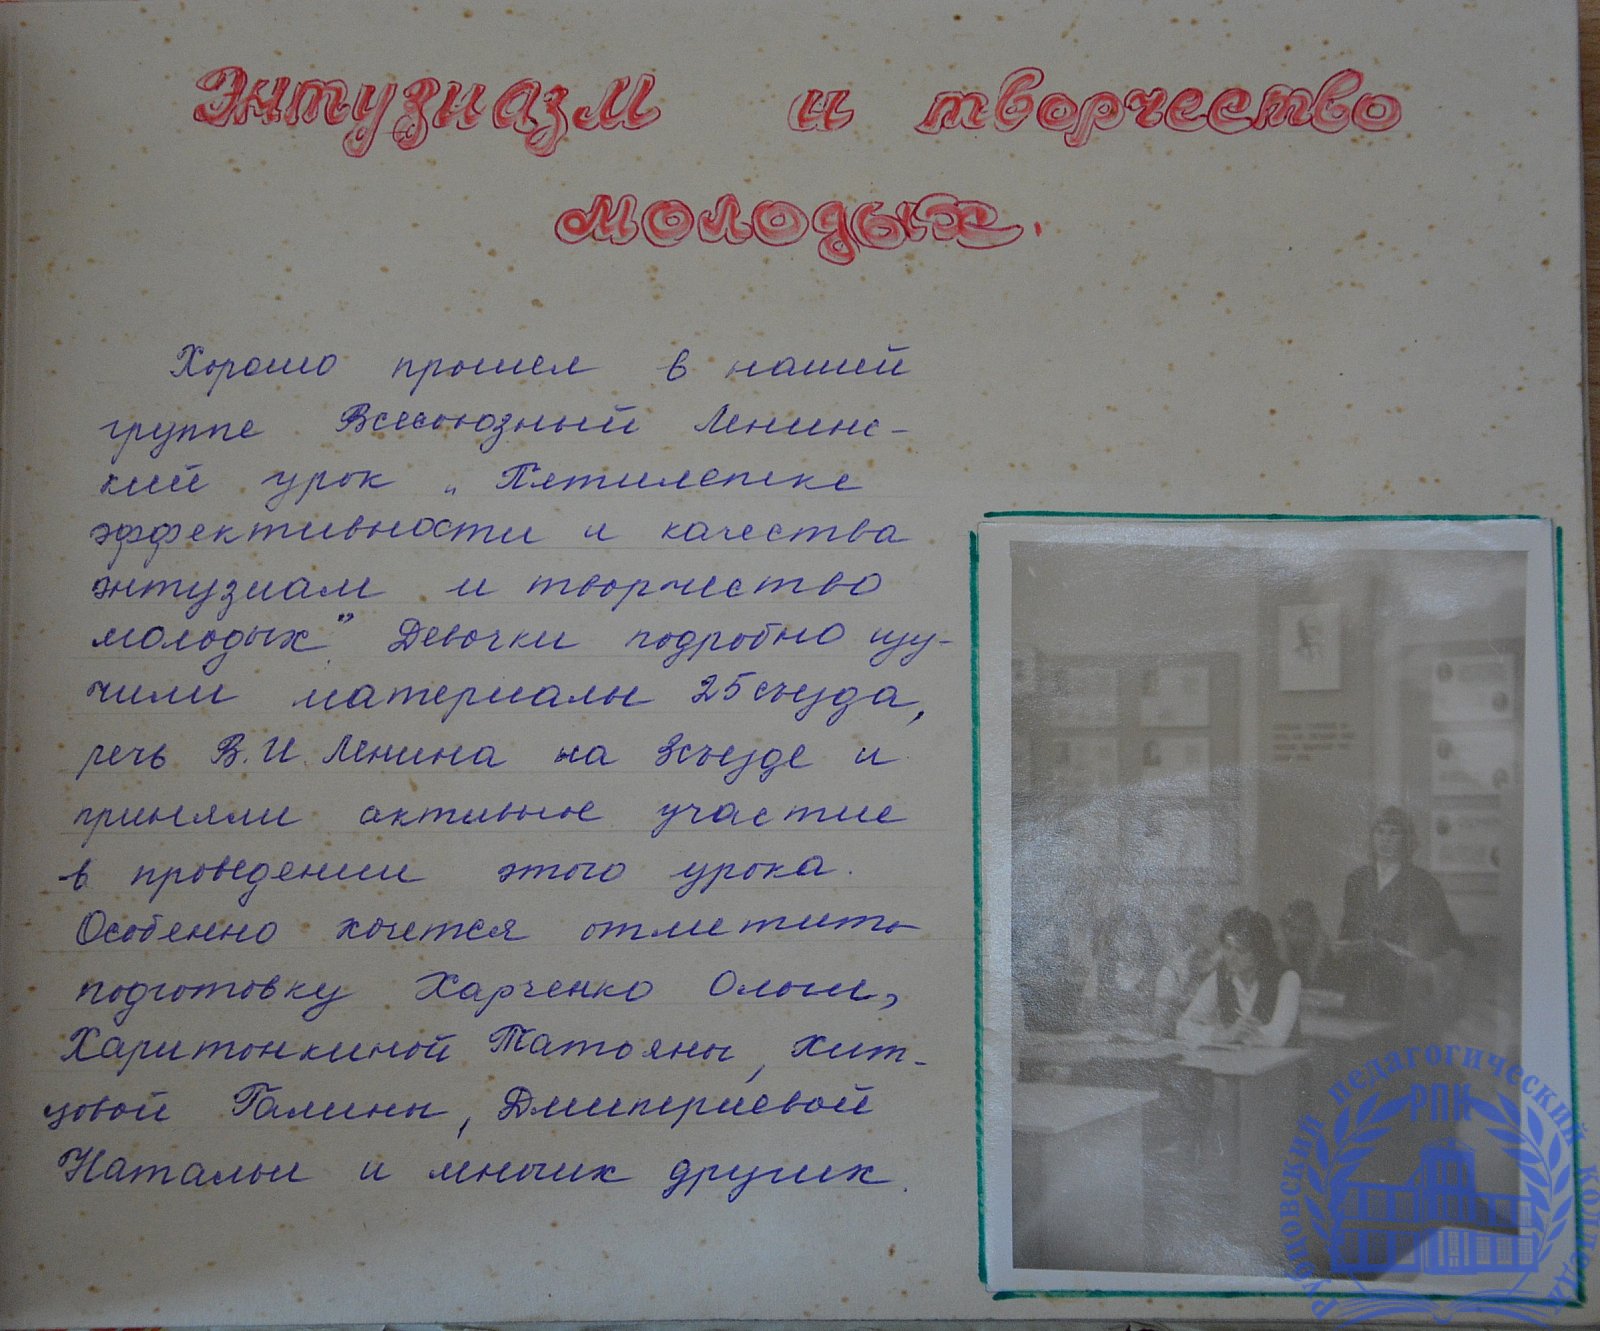 Энтузиазм и творчество
молодых.
Хорошо прошел в нашей
группе Всесоюзный Ленинс-
кий урок „Пятилетке
эффективности и качества
энтузиазм и творчество
молодых" Девочки подробно изу-
чили материалы 25 съезда,
речь В.И. Ленина на 3 съезде и
приняли активное участие
в проведении этого урока.
Особенно хочется отметить
подготовку Харченко Ольги,
Харитонкиной Татьяны, Хит-
цовой Галины, Дмитриевой
Натальи и многих других.
Рубцовский педагогический колледж
РПК